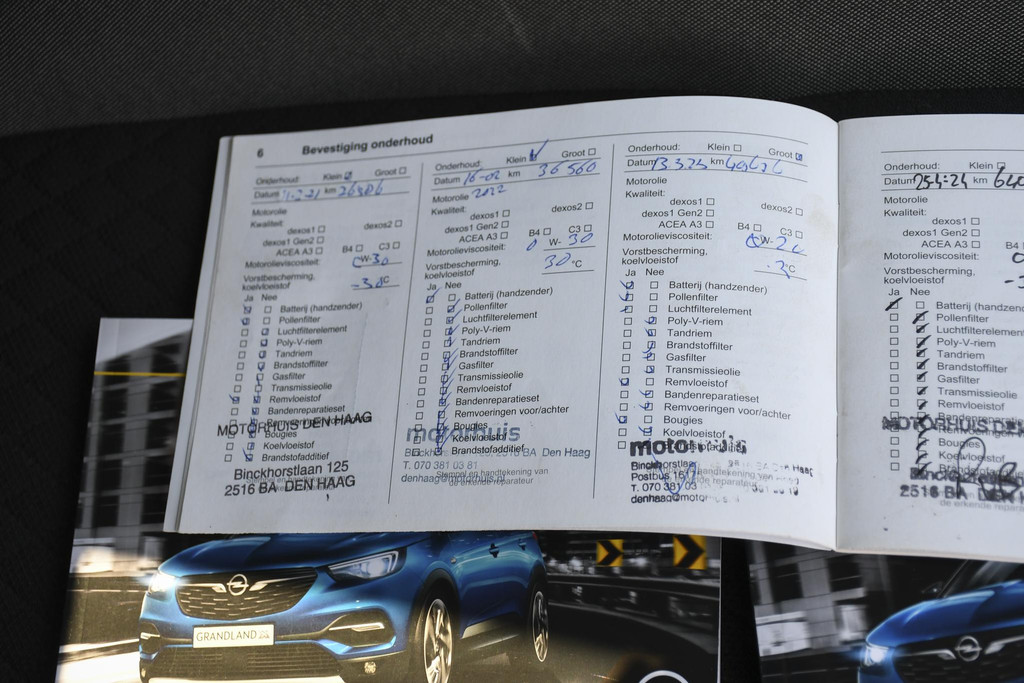 6 Bevestiging onderhoud
Onderhoud: Klein Groot
Datum km
Motorolie
Kwaliteit:
dexos1 dexos2
dexos1 Gen2
ACEA A3 B4 C3
Motorolieviscositeit: W-30
Vorstbescherming,
koelvloeistof -30 °C
Ja Nee
Batterij (handzender)
Pollenfilter
Luchtfilterelement
Poly-V-riem
Tandriem
Brandstoffilter
Gasfilter
Transmissieolie
Remvloeistof
Bandenreparatieset
MOTORHUIS DEN HAAG
Bougies
Koelvloeistof
Brandstofadditief
Binckhorstlaan 125
2516 BA DEN HAAG
Onderhoud: Klein Groot
Datum 16-02 km 36560
Motorolie 2022
Kwaliteit:
dexos1 dexos2
dexos1 Gen2
ACEA A3 B4 C3
Motorolieviscositeit: 0 W-30
Vorstbescherming,
koelvloeistof 30 °C
Ja Nee
Batterij (handzender)
Pollenfilter
Luchtfilterelement
Poly-V-riem
Tandriem
Brandstoffilter
Gasfilter
Transmissieolie
Remvloeistof
Bandenreparatieset
Remvoeringen voor/achter
Bougies
motorhuis
Koelvloeistof
Brandstofadditief
Den Haag
T. 070 381 03 81
Stempel en handtekening van
denhaag@motorhuis.nl
de erkende reparateur
Onderhoud: Klein Groot
Datum km
Motorolie
Kwaliteit:
dexos1 dexos2
dexos1 Gen2
ACEA A3 B4 C3
Motorolieviscositeit: W-
Vorstbescherming,
koelvloeistof °C
Ja Nee
Batterij (handzender)
Pollenfilter
Luchtfilterelement
Poly-V-riem
Tandriem
Brandstoffilter
Gasfilter
Transmissieolie
Remvloeistof
Bandenreparatieset
Remvoeringen voor/achter
Bougies
Koelvloeistof
motorhuis
Binckhorstlaan
Postbus
T. 070 381 03
denhaag@motor
Onderhoud: Klein
Datum 25-4-24 km 640
Motorolie
Kwaliteit:
dexos1
dexos1 Gen2
ACEA A3 B4
Motorolieviscositeit:
Vorstbescherming,
koelvloeistof
Ja Nee
Batterij (handzen
Pollenfilter
Luchtfilterelemen
Poly-V-riem
Tandriem
Brandstoffilter
Gasfilter
Transmissieolie
Remvloeistof
Bandenreparaties
MOTORHUIS DEN
Bougies
Koelvloeistof
2516 BA DEN
de erkende reparateur
GRANDLAND X